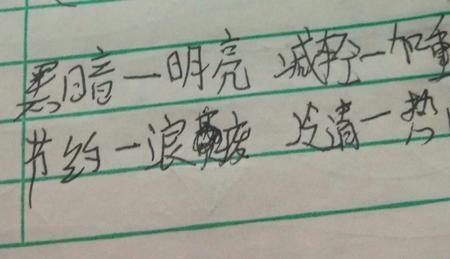 黑暗—明亮 减轻—加重
节约—浪 冷清—热